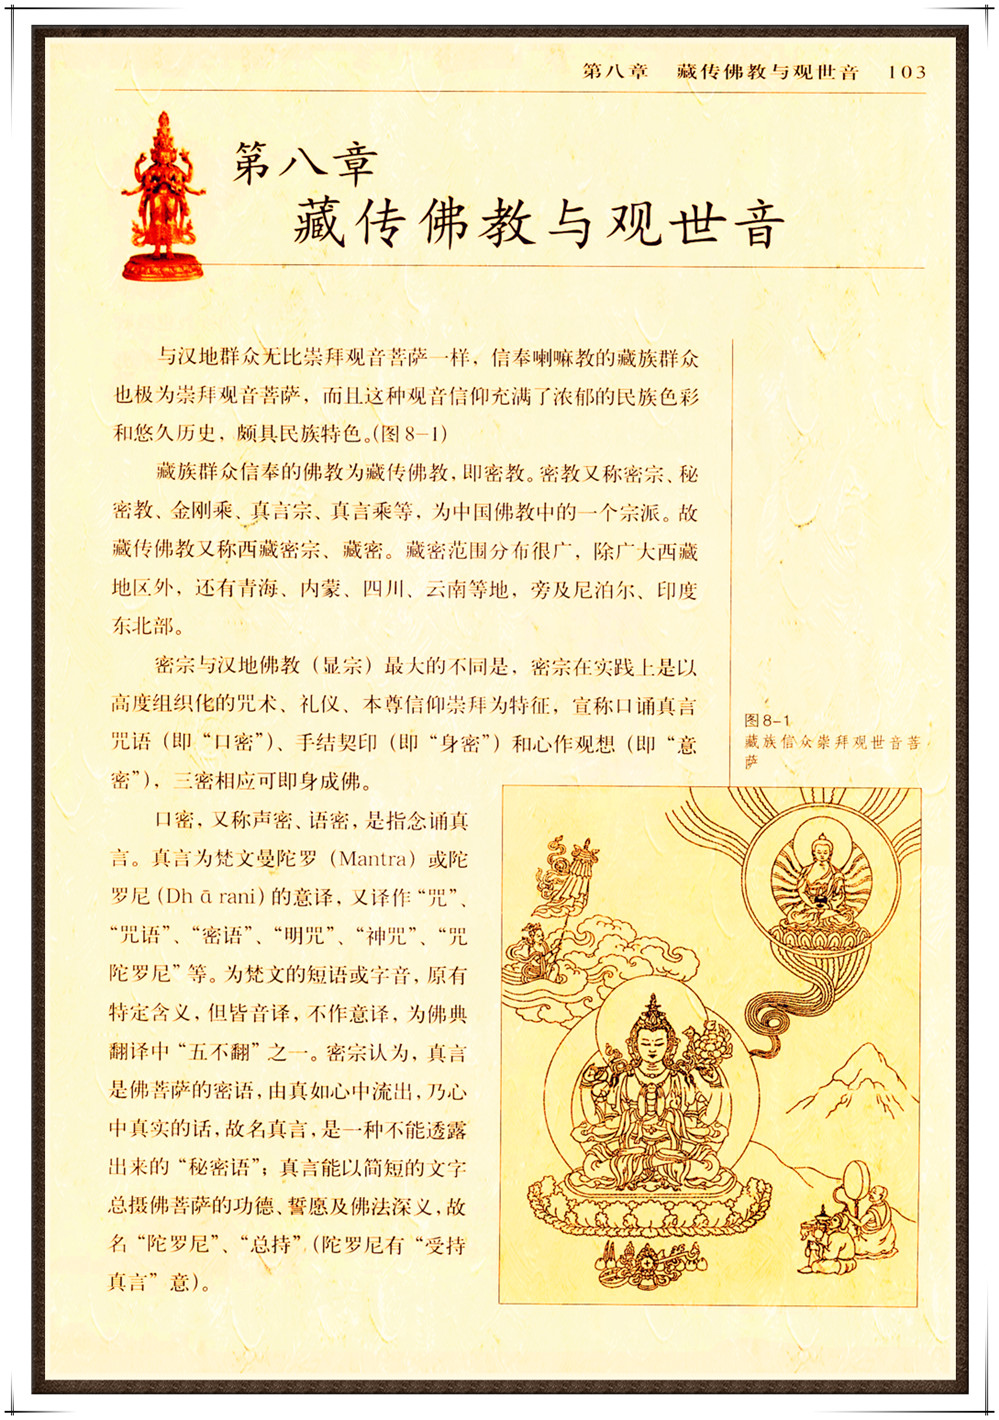 第八章 藏传佛教与观世音 103
第八章
藏传佛教与观世音
与汉地群众无比崇拜观音菩萨一样，信奉喇嘛教的藏族群众
也极为崇拜观音菩萨，而且这种观音信仰充满了浓郁的民族色彩
和悠久历史，颇具民族特色。(图8-1)
藏族群众信奉的佛教为藏传佛教，即密教。密教又称密宗、秘
密教、金刚乘、真言宗、真言乘等，为中国佛教中的一个宗派。故
藏传佛教又称西藏密宗、藏密。藏密范围分布很广，除广大西藏
地区外，还有青海、内蒙、四川、云南等地，旁及尼泊尔、印度
东北部。
密宗与汉地佛教（显宗）最大的不同是，密宗在实践上是以
高度组织化的咒术、礼仪、本尊信仰崇拜为特征，宣称口诵真言
咒语（即“口密”）、手结契印（即“身密”）和心作观想（即“意
密”），三密相应可即身成佛。
口密，又称声密、语密，是指念诵真
言。真言为梵文曼陀罗（Mantra）或陀
罗尼（Dhārani）的意译，又译作“咒”、
“咒语”、“密语”、“明咒”、“神咒”、“咒
陀罗尼”等。为梵文的短语或字音，原有
特定含义，但皆音译，不作意译，为佛典
翻译中“五不翻”之一。密宗认为，真言
是佛菩萨的密语，由真如心中流出，乃心
中真实的话，故名真言，是一种不能透露
出来的“秘密语”；真言能以简短的文字
总摄佛菩萨的功德、誓愿及佛法深义，故
名“陀罗尼”、“总持”（陀罗尼有“受持
真言”意）。
图8-1
藏族信众崇拜观世音菩
萨